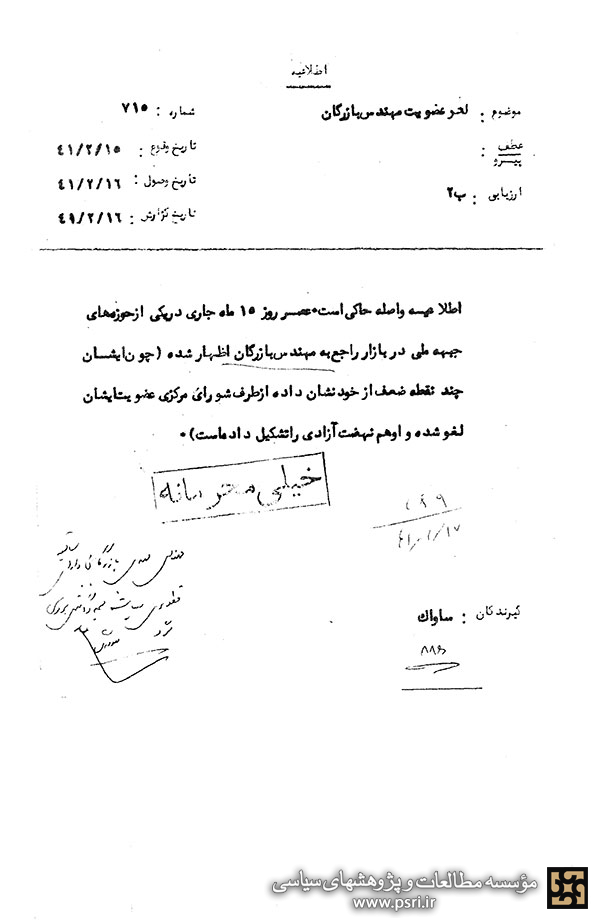 اطلاعیه
موضوع : لغو عضویت مهندس بازرگان
شماره : ۷۱۵
عطف
پیرو :
تاریخ وقوع : ۴۱/۲/۱۵
تاریخ وصول : ۴۱/۲/۱۶
ارزیابی : ب۲
تاریخ گزارش : ۴۱/۲/۱۶
اطلاعیه واصله حاکی است٠عصر روز ۱۵ ماه جاری دریکی ازحوزه‌های
جبهه ملی در بازار راجع به مهندس بازرگان اظهار شده (چون ایشان
چند نقطه ضعف از خود نشان داده ازطرف شورای مرکزی عضویت ایشان
لغو شده و اوهم نهضت آزادی راتشکیل داده‌است)٠
خیلی محرمانه
مهندس مهدی بازرگان دارای
گیرندگان : ساواک
مؤسسه مطالعات و پژوهشهای سیاسی
www.psri.ir